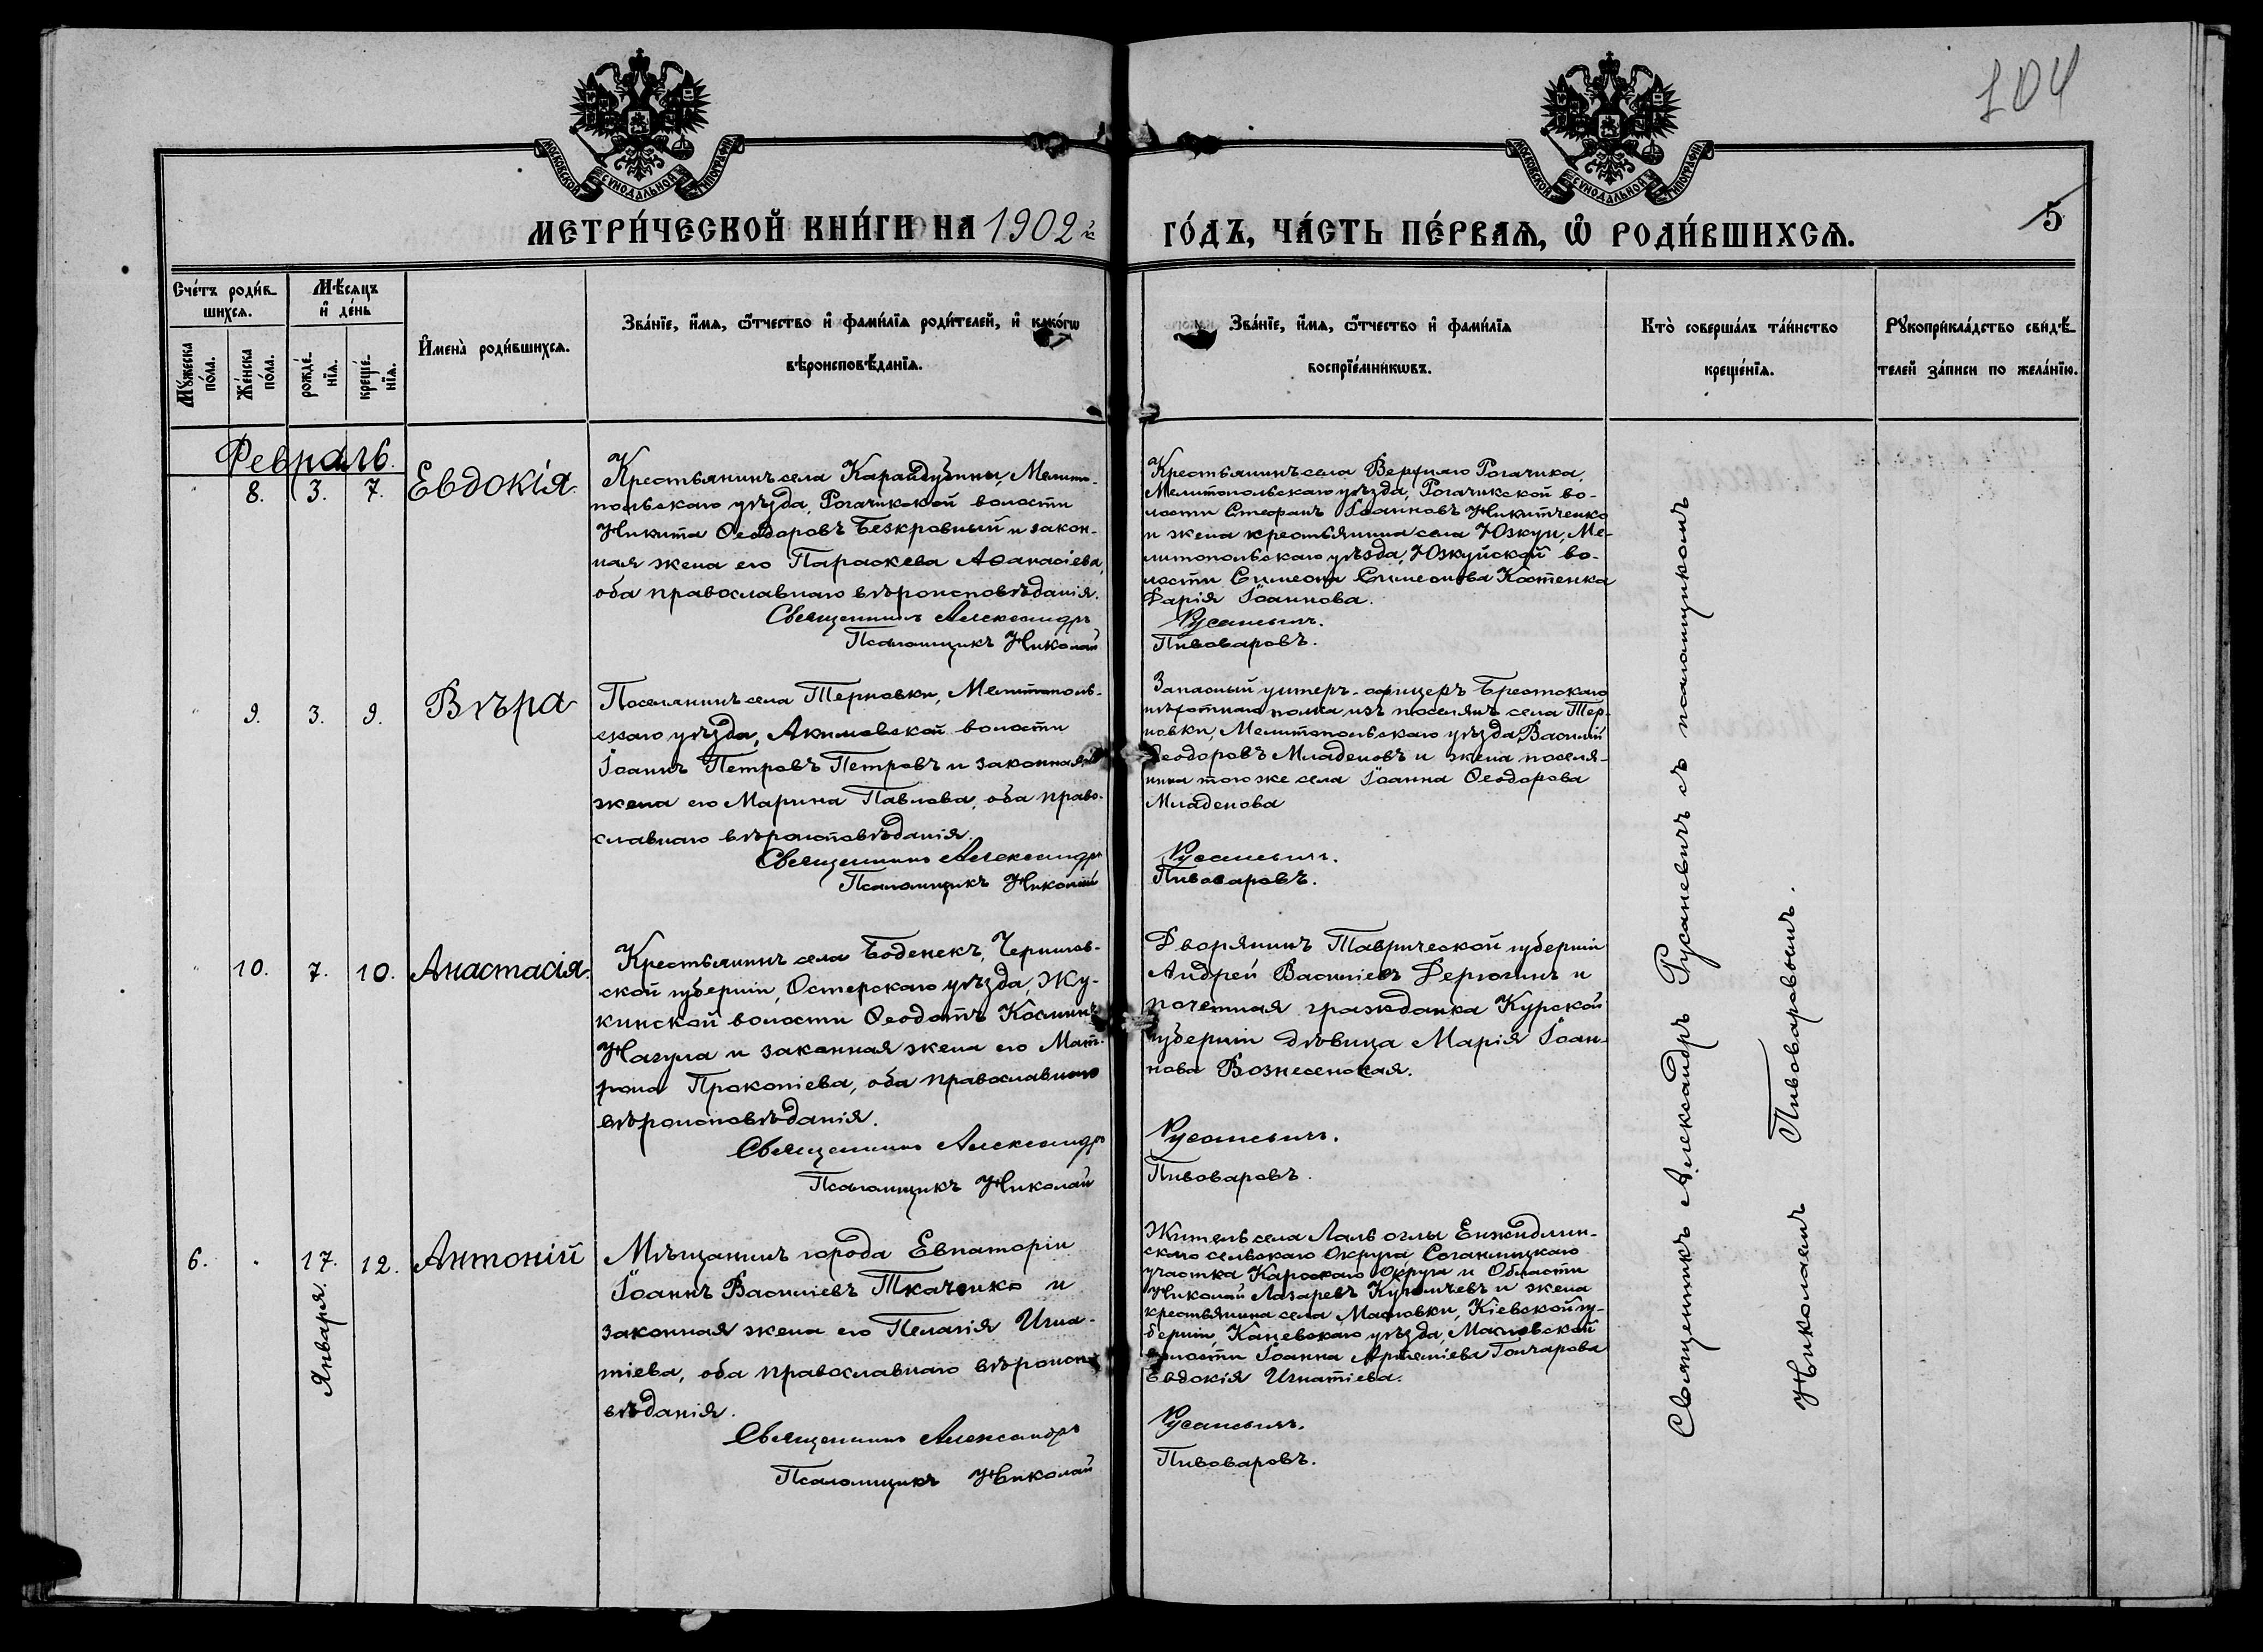 104
МОСКОВСКОЙ СѴНОДАЛЬНОЙ ТИПОГРАФІИ
МОСКОВСКОЙ СѴНОДАЛЬНОЙ ТИПОГРАФІИ
МЕТРИ́ЧЕСКОЙ КНИ́ГИ НА 1902й
ГО́ДЪ, ЧА́СТЬ ПЕ́РВАѦ, Ѡ РОДИ́ВШИХСѦ.
5
Сче́тъ роди́в-
шихсѧ.
Мѣ́сѧцъ
и҆ де́нь
Мꙋ́жеска
по́ла.
Же́нска
по́ла.
рожде́-
нїѧ.
креще́-
нїѧ.
И҆мена̀ роди́вшихсѧ.
Зва́нїе, и҆́мѧ, ѻ҆́тчество и҆ фами́лїѧ роди́телей, и҆ какѡ́гѡ
вѣроисповѣ́данїѧ.
Зва́нїе, и҆́мѧ, ѻ҆́тчество и҆ фами́лїѧ
воспрїе́мникѡвъ.
Кто̀ соверша́лъ та́инство
креще́нїѧ.
Рꙋкоприкла́дство свидѣ́-
телей за́писи по жела́нїю.
Февраль.
8. 3. 7. Евдокія.
Крестьянинъ села Карайдубины, Мелито-
польскаго уѣзда, Рогачикской волости
Никита Ѳеодоровъ Безкровный и закон-
ная жена его Параскева Аѳанасіева,
оба православнаго вѣроисповѣданія.
Священникъ Александръ
Псаломщикъ Николай
Крестьянинъ села Верхняго Рогачика,
Мелитопольскаго уѣзда, Рогачикской во-
лости Стефанъ Іоанновъ Никитченко
и жена крестьянина села Юзкуи, Ме-
литопольскаго уѣзда, Юзкуйской во-
лости Симеона Симеонова Костенка
Дарія Іоаннова.
Русаневичъ.
Пивоваровъ.
9. 3. 9. Вѣра
Поселянинъ села Терновки, Мелитополь-
скаго уѣзда, Акимовской волости
Іоаннъ Петровъ Петровъ и законная
жена его Марина Павлова, оба право-
славнаго вѣроисповѣданія.
Священникъ Александръ
Псаломщикъ Николай
Запасный унтеръ-офицеръ Брестскаго
пѣхотнаго полка, изъ поселянъ села Тер-
новки, Мелитопольскаго уѣзда, Василій
Ѳеодоровъ Младеновъ и жена поселя-
нина того же села Іоанна Ѳеодорова
Младенова
Русаневичъ.
Пивоваровъ.
10. 7. 10. Анастасія.
Крестьянинъ села Боденекъ, Чернигов-
ской губерніи, Остерскаго уѣзда, Жу-
кинской волости Ѳеодотъ Косминъ
Нагула и законная жена его Мат-
рона Прокопіева, оба православнаго
вѣроисповѣданія.
Священникъ Александръ
Псаломщикъ Николай
Дворянинъ Таврической губерніи
Андрей Василіевъ Дерюгинъ и
почетная гражданка Курской
губерніи дѣвица Марія Іоан-
нова Вознесенская.
Русаневичъ.
Пивоваровъ.
6. 17. 12. Антоній
Января.
Мѣщанинъ города Евпаторіи
Іоаннъ Василіевъ Ткаченко и
законная жена его Пелагія Игна-
тіева, оба православнаго вѣроиспо-
вѣданія.
Священникъ Александръ
Псаломщикъ Николай
Житель села Лаль оглы Енжидлин-
скаго сельскаго Округа Соганлугскаго
участка Карсскаго Округа и Области
Николай Лазаревъ и жена
крестьянина села Масловки, Кіевской гу-
берніи, Каневскаго уѣзда, Масловской
волости Іоанна Артеміева Гончарова
Евдокія Игнатіева.
Русаневичъ.
Пивоваровъ.
Священникъ Александръ Русаневичъ съ псаломщикомъ
Николаемъ Пивоваровымъ.